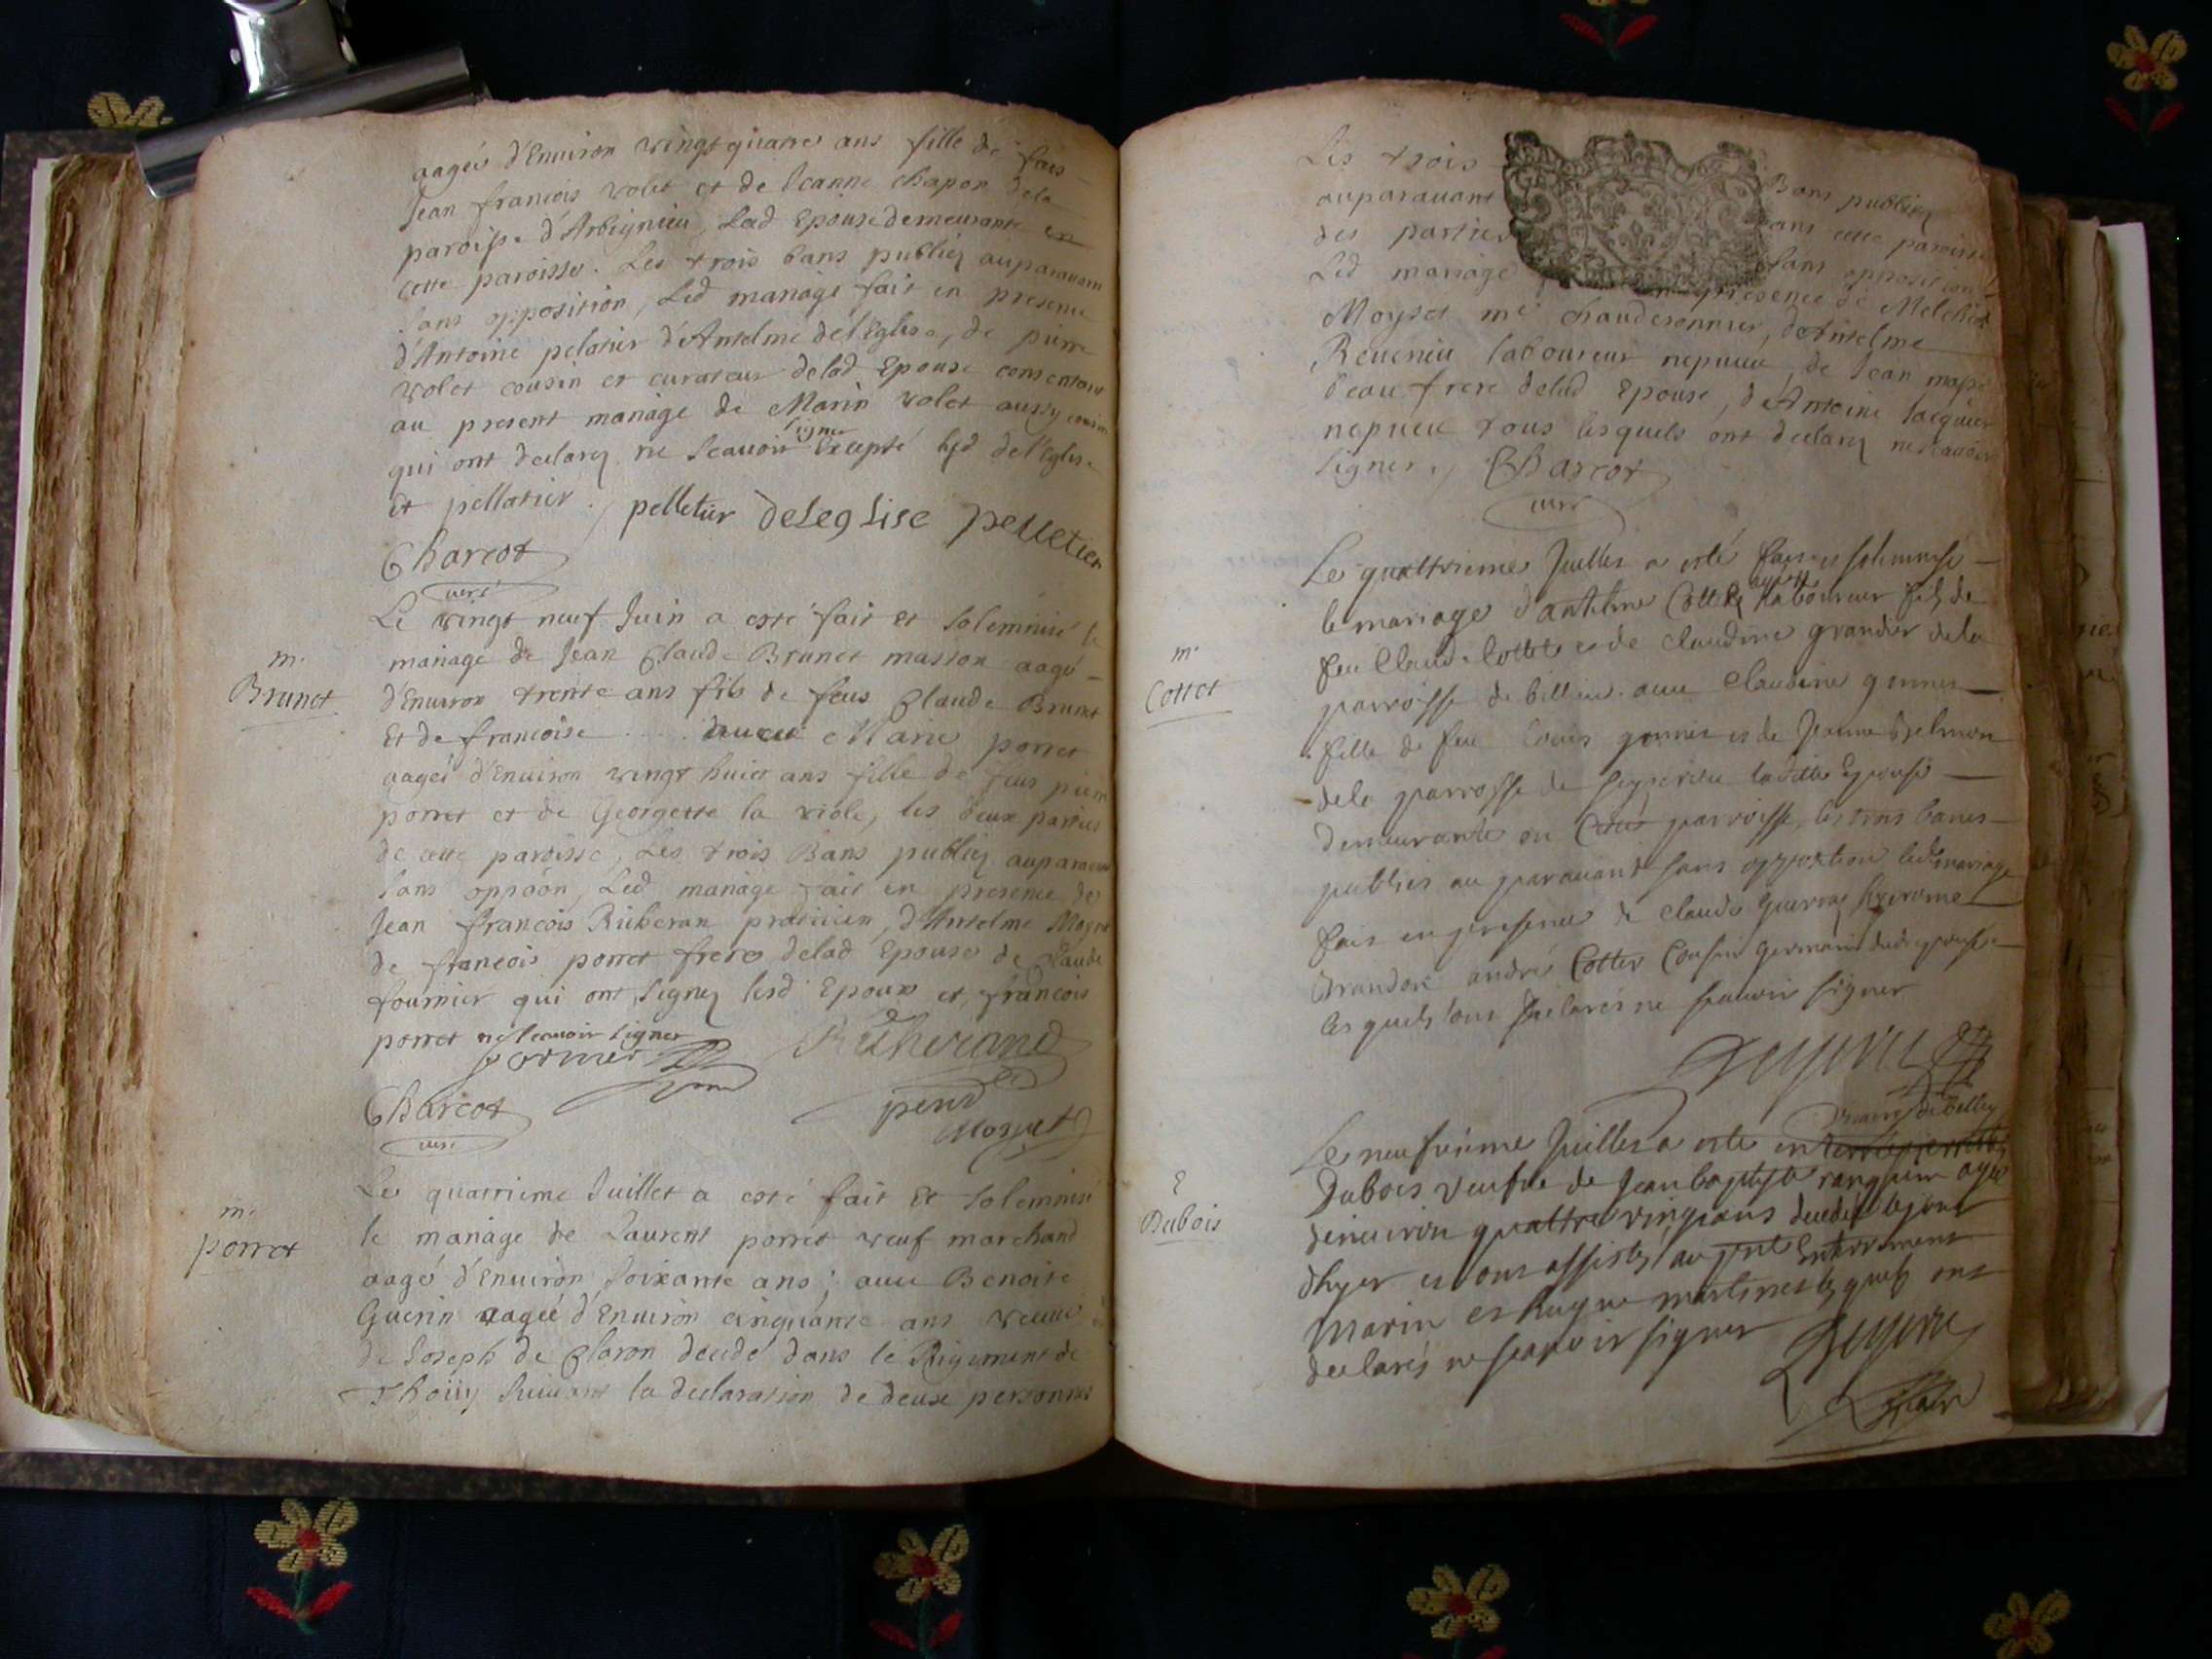 aagée d'Enuiron vingt quatre ans fille de feus
Jean francois volet et de Jeanne chapon dela
paroisse d'Arbignieu, Lad Epouse demeurante en
cette paroisse. Les trois bans publiez auparauant
sans opposition, Led mariage fait en presence
d'Antoine pelatier d'Antelme de l'Eglise, de pierre
volet cousin et curateur delad Epouse consentant
au present mariage de Marin volet aussy cousin
qui ont declarez ne scauoir signer Excepté lesd de l'Eglise
Et pellatier.
pelletier deleglise pelletier
Charcot
curé
m.
Brunet
Le vingt neuf Juin a esté fait et solemnisé le
mariage de Jean Claude Brunet masson aagé
d'Enuiron trente ans fils de feus Claude Brunet
Et de francoise .... auec Marie porret
aagée d'Enuiron vingt huict ans fille de feus pierre
porret et de Georgette la viole, les deux parties
de cette paroisse, Les trois Bans publiez auparauant
sans oppoôn, Led mariage fait en presence de
Jean francois praticien, d'Antelme
de francois porret frere delad Epouse de Claude
fournier qui ont signez lesd Epoux et francois
porret ne scauoir signer
Charcot
curé
m.
porret
Le quatrieme Juillet a esté fait Et solemnisé
le mariage de Laurent porret veuf marchand
aagé d'Enuiron soixante ans; auec Benoite
Guerin aagée d'Enuiron cinquante ans veuue
de Joseph de Claron decedé dans le Regiment de
Thoüy suiuant la declaration de deux personnes
Les trois Bans publiez
auparauant dans cette paroisse
des parties sans opposition
Led mariage presence de Melchior
Moyset mé chauderonnier, d'Antelme
Reuenieu laboureur nepueu, de Jean
beau frere delad Epouse, d'Antoine Jacquier
nepueu tous lesquels ont declarez ne scauoir
signer. Charcot
curé
m.
Cottet
Le quattrieme Juillet a esté fait et solemnisé
le mariage d'antelme Cottet laboureur fils de
feu Claude Cottet et de claudine grandier dela
parroisse de billieu auec Claudine gonnet
fille de feu Louis gonnet et de Jeanne
dela parroisse de laditte Epouse
demeurante en cette parroisse, les trois bancs
publiés au parauant sans opposition led mariage
fait en presence de claude
andré Cottet Cousin germain dud
les quels ont declarés ne scauoir signer
E
Dubois
Le neufuième Juillet a esté
Dubois veufue de Jean baptiste aagé
denuiron quattre vingt ans decedé le jour
dhyer et ont assistés au pnt Enterrement
Marin et martinet les quels ont
declarés ne scauoir signer